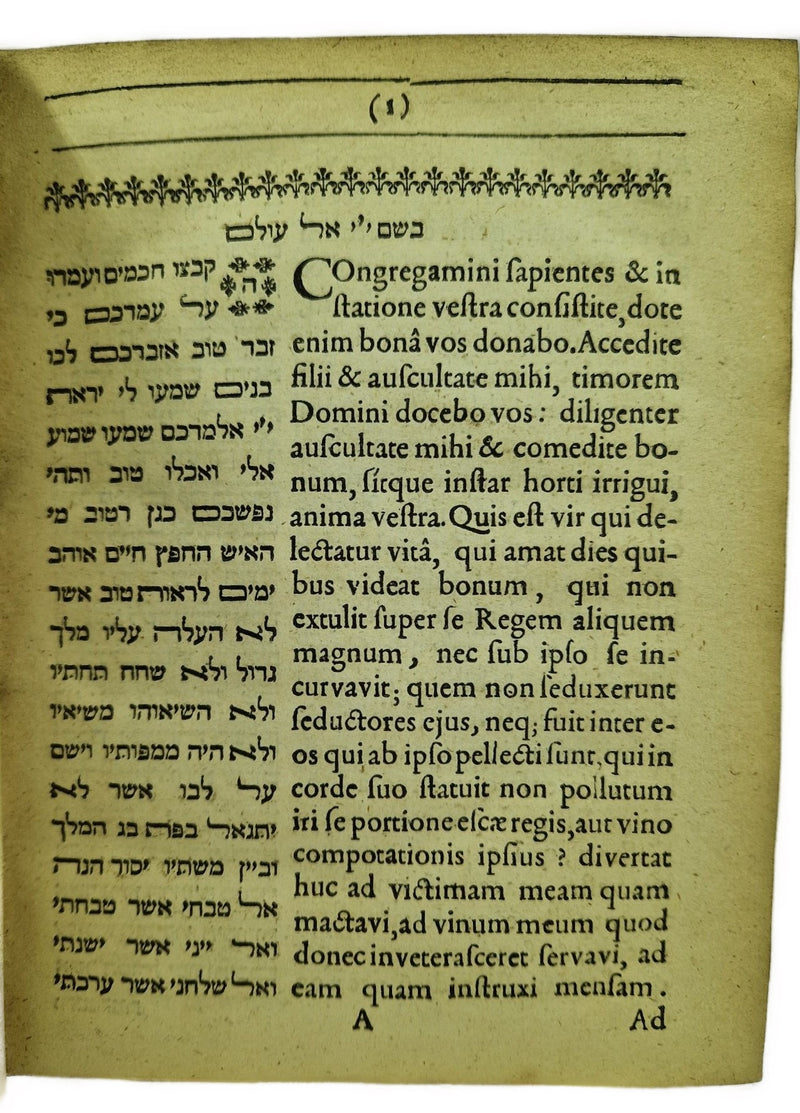 (1)
בשם י״י אל עולם
הקבצו חכמים ועמדו
על עמדכם כי
זבד טוב אזבדכם לכו
בנים שמעו לי יראת
י״י אלמדכם שמעו שמוע
אלי ואכלו טוב ותהי
נפשכם כגן רטוב מי
האיש החפץ חיים אוהב
ימים לראות טוב אשר
לא העלה עליו מלך
גדול ולא שחח תחתיו
ולא השיאוהו משיאיו
ולא היה ממפותיו וישם
על לבו אשר לא
יתגאל בפת בג המלך
וביין משתיו יסור הנה
אל טבחי אשר טבחתי
ואל ייני אשר ישנתי
ואל שלחני אשר ערכתי
COngregamini ſapientes & in
ſtatione veſtra conſiſtite, dote
enim bonâ vos donabo. Accedite
filii & auſcultate mihi, timorem
Domini docebo vos: diligenter
auſcultate mihi & comedite bo-
num, ſicque inſtar horti irrigui,
anima veſtra. Quis eſt vir qui de-
lectatur vitâ, qui amat dies qui-
bus videat bonum, qui non
extulit ſuper ſe Regem aliquem
magnum, nec ſub ipſo ſe in-
curvavit; quem non ſeduxerunt
ſeductores ejus, neq; fuit inter e-
os qui ab ipſo pellecti ſunt, qui in
corde ſuo ſtatuit non pollutum
iri ſe portione eſcæ regis, aut vino
compotationis ipſius ? divertat
huc ad victimam meam quam
mactavi, ad vinum meum quod
donec inveteraſceret ſervavi, ad
eam quam inſtruxi menſam.
A Ad